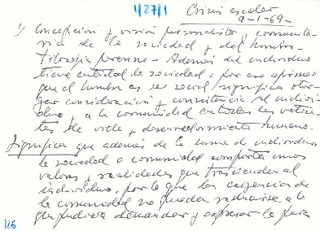 1/27/1
Crisis escolar
9-1-69-
1) Concepción y visión personalista y comunita-
ria de la sociedad y del hombre-
Filosofía perenne - Además del individuo
tiene entidad la sociedad, por eso afirmar
que el hombre es ser social significa otor-
gar consideración y consistencia al indivi-
duo, y a la comunidad
de vida y desenvolvimiento humano.
Significa que además de la suma de individuos
la sociedad o comunidad comporta unos
valores y realidades que trascienden al
individuo, por lo que las exigencias de
la comunidad no pueden reducirse a lo
que pudiera demandar y esperar la pura
126